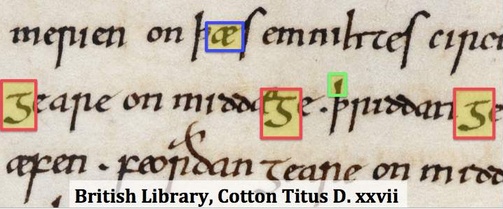 merien on þæs emnihtes circ
geare on middæge . þriddan ge
æfen . feorðan geare on
British Library, Cotton Titus D. xxvii